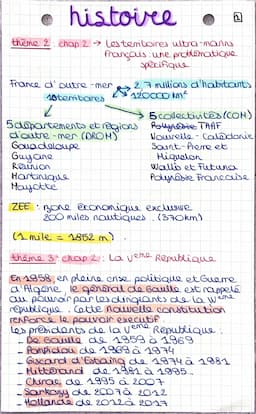 histoire
1
thème 2 chap 2 → Les territoires ultra-marins
français : une problématique
spécifique
France d'outre-mer 2,7 millions d'habitants
10 territoires 120000 km²
5 départements et régions
d'outre-mer (DROM)
Guadeloupe
Guyane
Réunion
Martinique
Mayotte
5 collectivités (COM)
TAAF
Nouvelle-Calédonie
Saint-Pierre et
Miquelon
Wallis et Futuna
Polynésie Française
ZEE : zone économique exclusive
200 miles nautiques. (370km)
(1 mile = 1852 m)
thème 3 chap 2 : La Vème République
En 1958, en pleine crise politique et Guerre
d'Algérie, le général de Gaulle est rappelé
au pouvoir par les dirigants de la IVème
république. Cette nouvelle constitution
renforce le pouvoir exécutif.
Les présidents de la Vème République.
- De Gaulle de 1959 à 1969
- Pompidou de 1969 à 1974
- Giscard d'Estaing de 1974 à 1981
- Mitterand de 1981 à 1995
- Chirac de 1995 à 2007
- Sarkozy de 2007 à 2012
- Hollande de 2012 à 2017